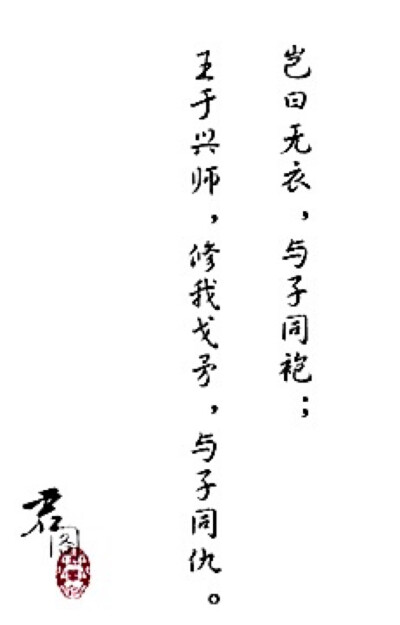 岂曰无衣，与子同袍；
王于兴师，修我戈矛，与子同仇。
君
图